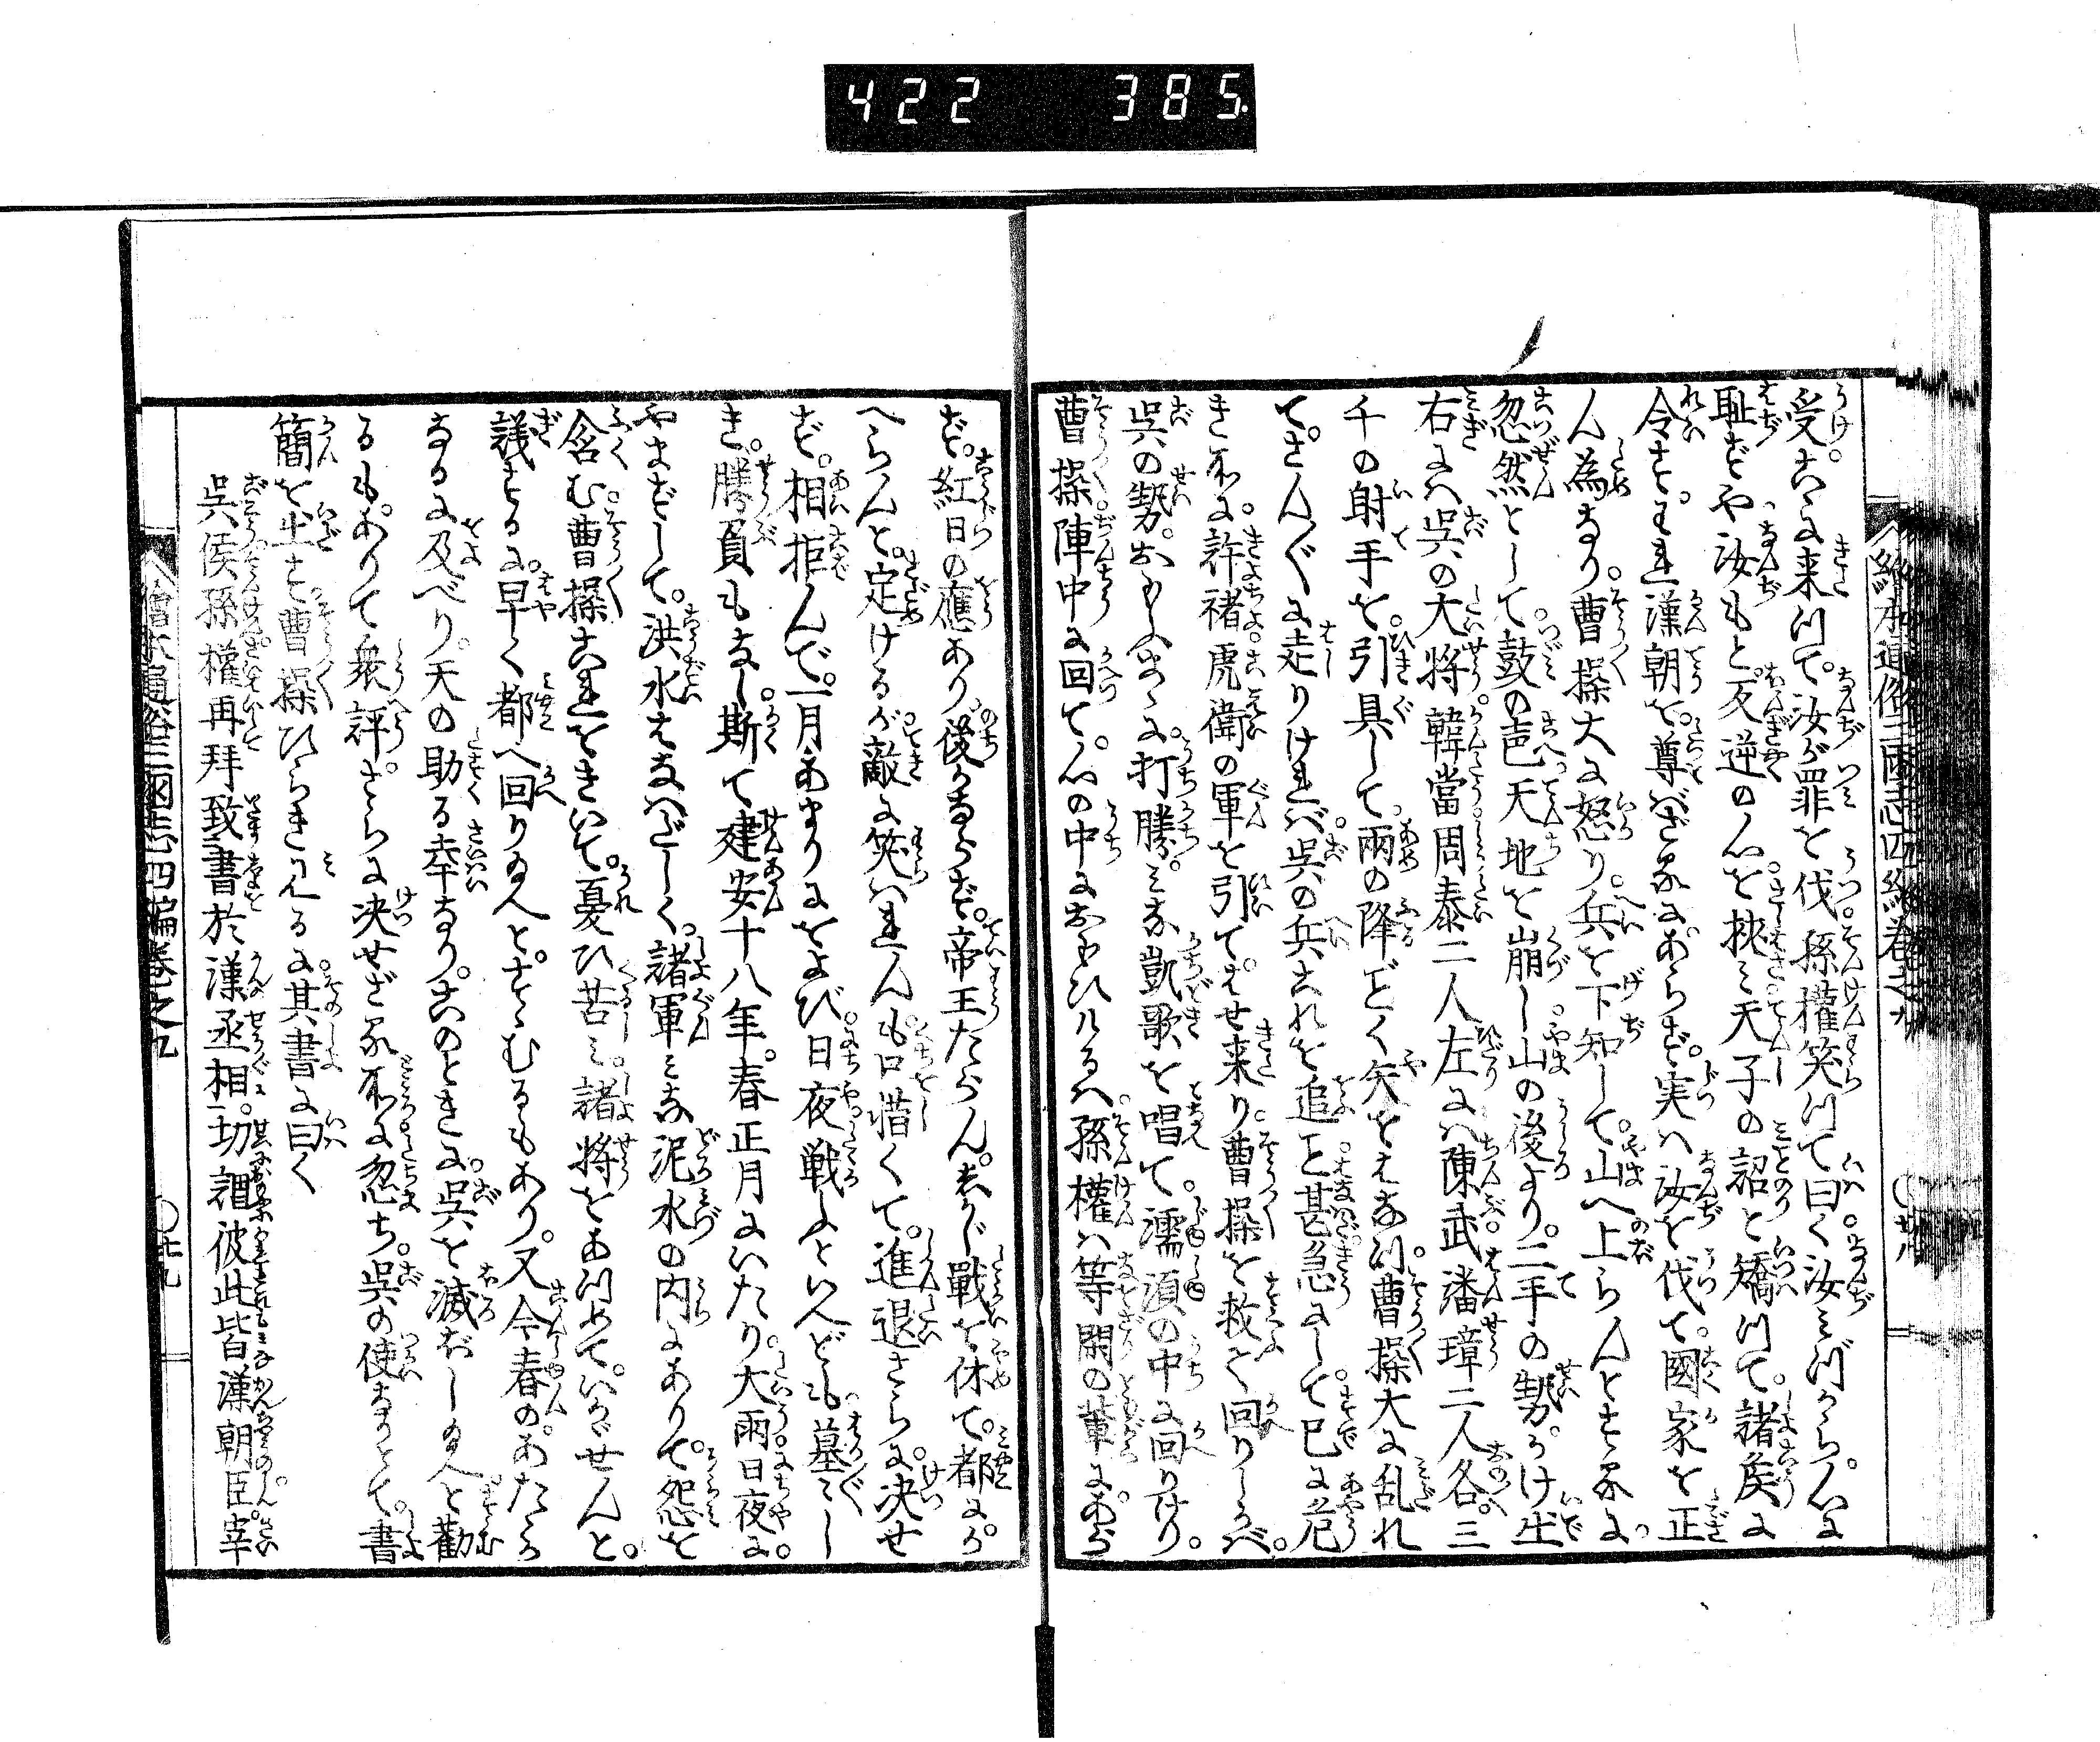 422 385
繪本通俗三國志四編卷之九
〇廿八
受。こゝに来つて。汝が罪を伐。孫權笑つて曰く汝みづから。心に
恥ずや汝もと。反逆の心を挾み天子の詔と矯つて。諸侯に
令す。われ漢朝を。尊ばざるにあらず。実は汝を伐て。國家を正
ん為なり。曹操大に怒り。兵を下知して。山へ上らんとするに。
忽然として。鼓の声天地を崩し。山の後より。二手の勢。かけ出
右には呉の大将。韓當周泰二人左には陳武。潘璋二人各。三
千の射手を。引具して。雨の降ごとく矢をはなつ。曹操大に乱れ
て。さん〴〵に走りければ。呉の兵これを追こと甚急にして已に危
き所に。許褚。虎衛の軍を引てはせ来り。曹操を救て回りしかば。
呉の勢。おもふまゝに。打勝。みな凱歌を唱て。濡須の中に回りけり。
曹操。陣中に回て。心の中におもひけるは。孫權は等閑の輩にあらず
ず。紅日の應あり後かならず。帝王たらん。しかじ戰を休て。都にか
へらんと。定けるが。敵に笑はれんも。口惜くて。進退さらに。決せ
ず。相拒んで。一月あまりにをよび。日夜戦ふといへども。墓〳〵し
き。勝負もなし。斯て建安十八年。春正月にいたり。大雨日夜に。
やまずして。洪水はなはだしく。諸軍みな泥水の内にありて。怨を
含む。曹操これをきいて。憂ひ苦み。諸将をあつめて。いかゞせんと。
議するに。早く都へ回り給へと。すゝむるもあり。又今春の。あたゝか
なるに及べり。天の助る幸なり。このときに。呉を滅ぼし給へと勸
るもありて衆評。さらに決せざる所に忽ち。呉の使なりとて。書
簡を出す。曹操ひらき見るに。其書に曰く
呉侯孫權再拜致書於漢丞相。切謂彼此皆漢朝臣。宰
繪本通俗三國志四編卷之九
〇廿九